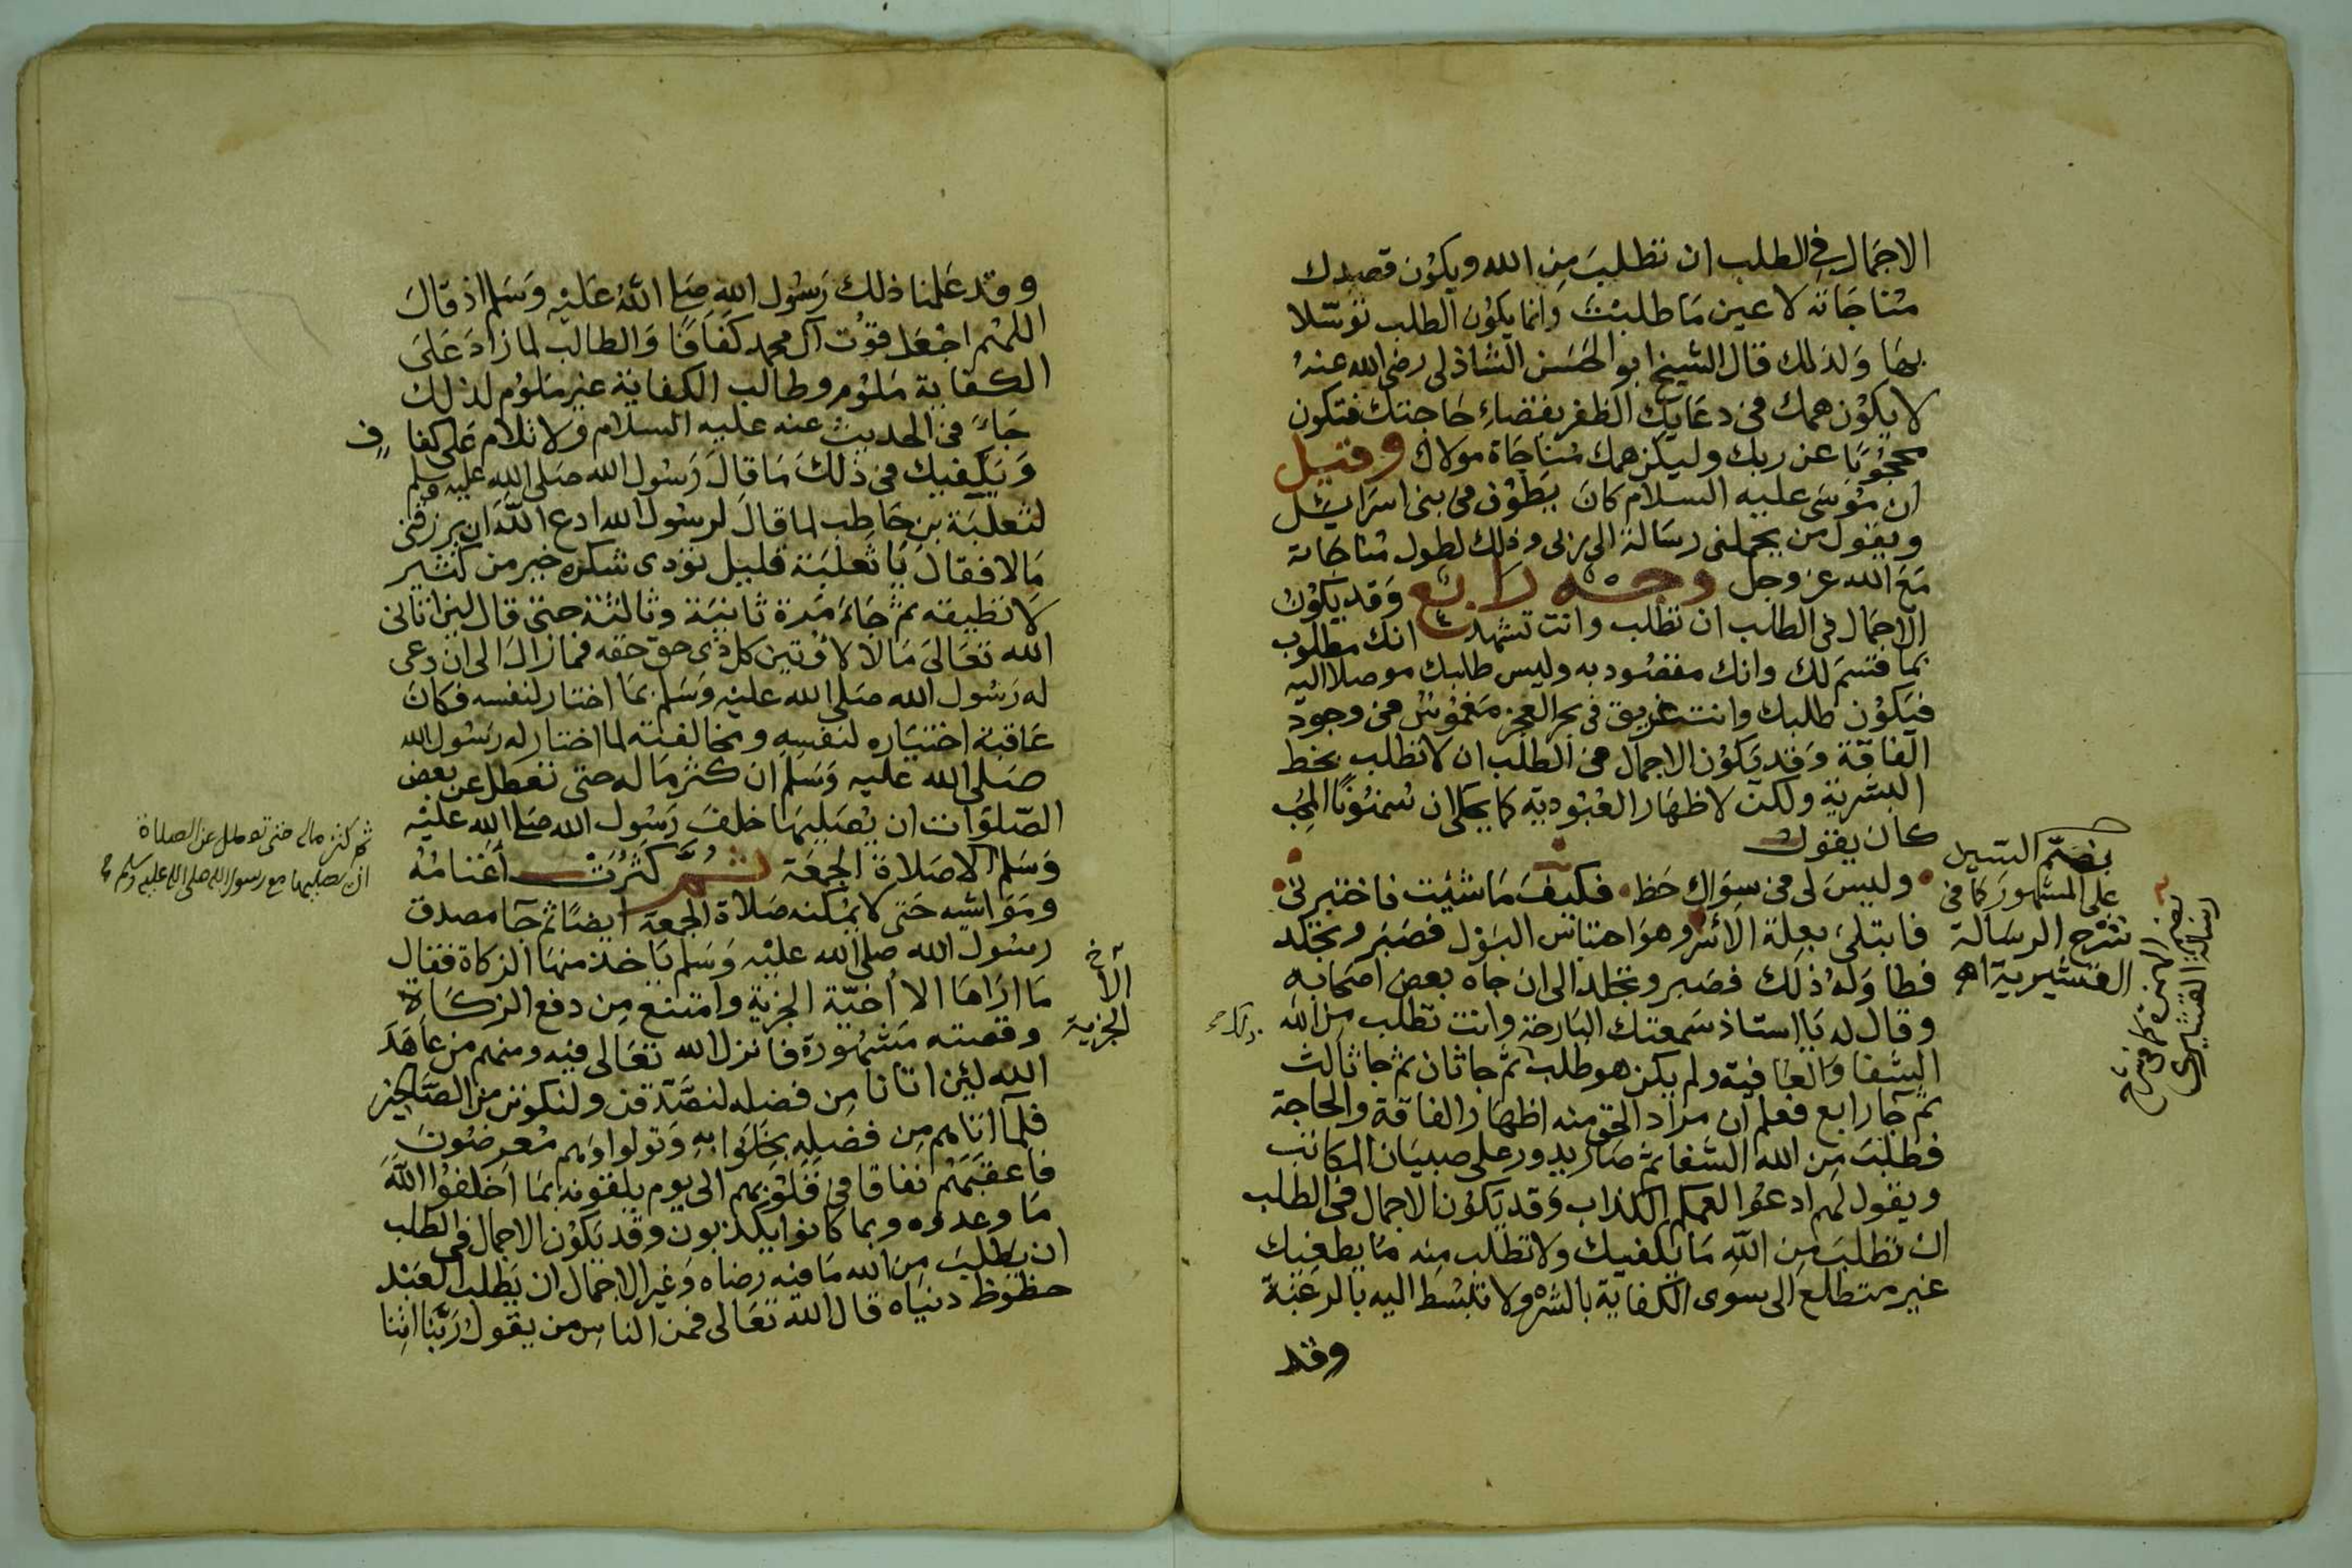 الاجمال في الطلب ان تطلب من الله ويكون قصدك
مناجاته لا عين ما طلبت وانما يكون الطلب توسلا
بها ولذلك قال الشيخ ابو الحسن الشاذلي رضي الله عنه
لا يكون همك في دعايك الظفر بقضاء حاجتك فتكون
محجوبا عن ربك وليكن همك مناجاة مولاك وقيل
ان موسى عليه السلام كان يطوف في بني اسرائيل
ويقول من يحملني رسالة الى ربي وذلك لطول مناجاته
مع الله عز وجل وجه رابع وقد يكون
الاجمال في الطلب ان تطلب وانت تشهد انك مطلوب
بما قسم لك وانك مقصود به وليس طلبك موصلا اليه
فيكون طلبك وانت غريق في بحر العجز مغموس في وجود
الفاقة وقد يكون الاجمال في الطلب ان لا تطلب بحظ
البشرية ولكن لاظهار العبودية كما يحكى ان سمنونا المحب
كان يقول
وليس لي في سواك حظ فكيف ما شئت فاختبرني
فابتلى بعلة الاسر وهو احتباس البول فصبر وتجلد
فطاوله ذلك فصبر وتجلد الى ان جاه بعض اصحابه
وقال له يا استاذ سمعتك البارحة وانت تطلب من الله
الشفا والعافية ولم يكن هو طلب ثم جا ثان ثم جا ثالث
ثم جا رابع فعلم ان مراد الحق منه اظهار الفاقة والحاجة
فطلب من الله الشفا ثم صار يدور على صبيان المكاتب
ويقول لهم ادعوا لعمكم الكذاب وقد يكون الاجمال في الطلب
ان تطلب من الله ما يكفيك ولا تطلب منه ما يطغيك
غير متطلع الى سوى الكفاية بالشره ولا تنبسط اليه بالرغبة
وقد
بضم السين
على المشهور كما في
شرح الرسالة
القشيرية اهـ
رسالة القشيري
وقد علمنا ذلك رسول الله صلى الله عليه وسلم اذ قال
اللهم اجعل قوت آل محمد كفافا والطالب لما زاد على
الكفاية ملوم وطالب الكفاية غير ملوم لذلك
جاء في الحديث عنه عليه السلام ولا تلام على كفاف
ويكفيك في ذلك ما قال رسول الله صلى الله عليه وسلم
لثعلبة بن حاطب لما قال لرسول الله ادع الله ان يرزقني
مالا فقال يا ثعلبة قليل تؤدى شكره خير من كثير
لا تطيقه ثم جاء مرة ثانية وثالثة حتى قال لين اتاني
الله تعالى مالا لاوتين كل ذي حق حقه فما زال الى ان دعى
له رسول الله صلى الله عليه وسلم بما اختار لنفسه فكان
عاقبة اختياره لنفسه ومخالفته لما اختار له رسول الله
صلى الله عليه وسلم ان كثر ماله حتى تعطل عن بعض
الصلوات ان يصليها خلف رسول الله صلى الله عليه
وسلم الا صلاة الجمعة ثم كثرت اغنامه
ومواشيه حتى لا يمكنه صلاة الجمعة ايضا ثم جا مصدق
رسول الله صلى الله عليه وسلم ياخذ منها الزكاة فقال
ما اراها الا اخية الجزية وامتنع من دفع الزكاة
وقصته مشهورة فانزل الله تعالى فيه ومنهم من عاهد
الله لئن اتانا من فضله لنصدقن ولنكونن من الصالحين
فلما اتاهم من فضله بخلوا به وتولوا وهم معرضون
فاعقبهم نفاقا في قلوبهم الى يوم يلقونه بما اخلفوا الله
ما وعدوه وبما كانوا يكذبون وقد يكون الاجمال في الطلب
ان يطلب من الله ما فيه رضاه وغير الاجمال ان يطلب العبد
حظوظ دنياه قال الله تعالى فمن الناس من يقول ربنا اتنا
ثم كثر ماله حتى تعطل عن الصلاة
ان يصليها مع رسول الله صلى الله عليه وسلم
الجزية